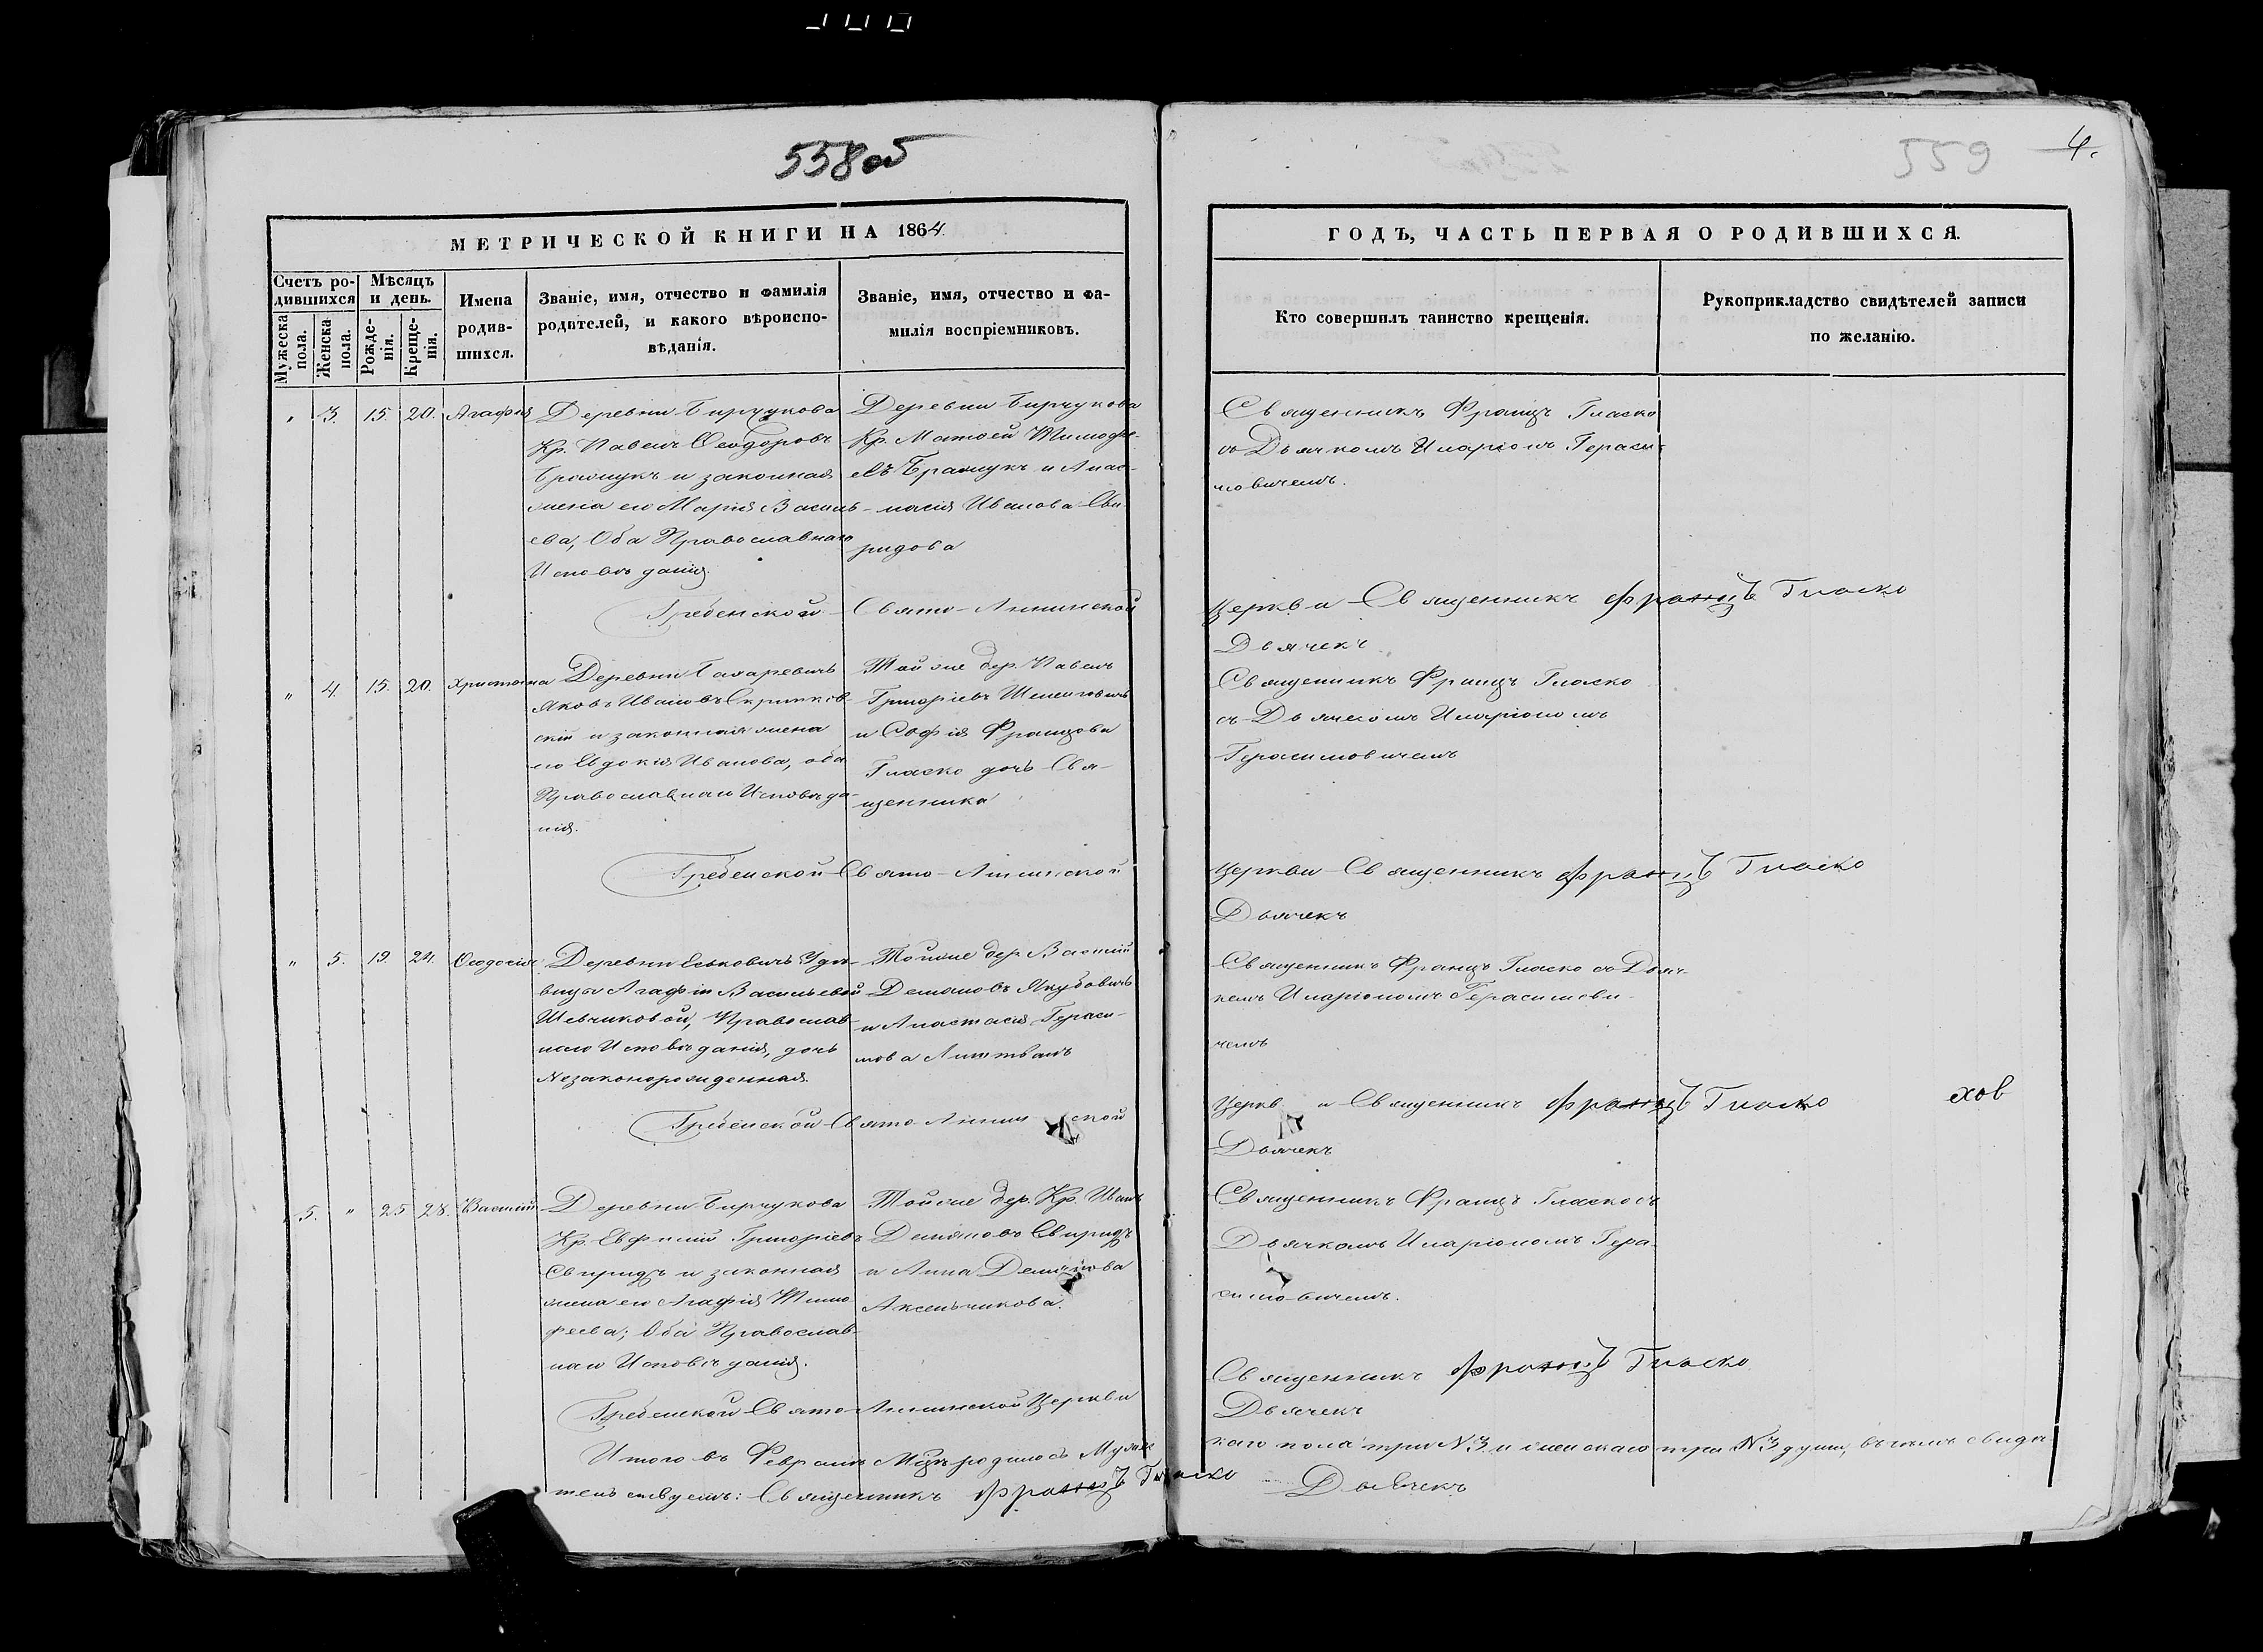 558об
559
4.
МЕТРИЧЕСКОЙ КНИГИ НА 1864.
Счетъ родившихся
Мужеска пола.
Женска пола.
Мѣсяцъ и день.
Рожденія.
Крещенія.
Имена родившихся.
Званіе, имя, отчество и фамилія
родителей, и какого вѣроиспо-
вѣданія.
Званіе, имя, отчество и фа-
милія воспріемниковъ.
ГОДЪ, ЧАСТЬ ПЕРВАЯ О РОДИВШИХСЯ.
Кто совершилъ таинство крещенія.
Рукоприкладство свидѣтелей записи
по желанію.
" 3. 15. 20. Агафія
Деревни Бирчукова
Кр. Павелъ Ѳеодоровъ
Брашукъ и законная
жена его Марія Василь-
ева, Оба Православнаго
Исповѣданія.
Деревни Бирчукова
Кр. Матѳей Тимофе-
евъ Брашукъ и Анас-
тасія Иванова Сви-
ридова
Священникъ Францъ Гласко
съ Дьячкомъ Иларіономъ Гераси-
мовичемъ.
Гребенской Свято-Аннинской Церкви Священникъ Францъ Гласко
Дьячекъ
" 4. 15. 20. Христина
Деревни
Яковъ Ивановъ Скрипков-
скій и законная жена
его Евдокія Иванова, оба
Православнаго Исповѣда-
нія.
Той же дер. Павелъ
Григоріевъ
и Софія Францова
Гласко дочь Свя-
щенника
Священникъ Францъ Гласко
съ Дьячкомъ Иларіономъ
Герасимовичемъ
Гребенской Свято-Аннинской Церкви Священникъ Францъ Гласко
Дьячекъ
" 5. 19. 24. Ѳеодосія
Деревни Еськовичъ Удо-
вицы Агафіи Васильевой
Шевчиковой, Православ-
наго Исповѣданія, дочь
Незаконорожденная.
Той же дер. Василій
Демяновъ Якубовичъ
и Анастасія Гераси-
мова Литвинъ
Священникъ Францъ Гласко съ Дьяч-
комъ Иларіономъ Герасимови-
чемъ
Гребенской Свято-Аннинской Церкви Священникъ Францъ Гласко
Дьячекъ
5. " 25 28. Василій
Деревни Бирчукова
Кр. Евфимій Григоріевъ
Свиридъ и законная
жена его Агафія Тимо-
феева; Оба Православ-
наго Исповѣданія.
Той же дер. Кр. Иванъ
Демяновъ Свиридъ
и Анна Демянова
Аксенчикова.
Священникъ Францъ Гласко съ
Дьячкомъ Иларіономъ Гера-
симовичемъ.
Гребенской Свято-Аннинской Церкви Священникъ Францъ Гласко
Дьячекъ
Итого въ Февралѣ Мцѣ родилось Мужес-
каго пола три №3 и женскаго три №3 души, въ чемъ свидѣ-
тельствуемъ: Священникъ Францъ Гласко Дьячекъ